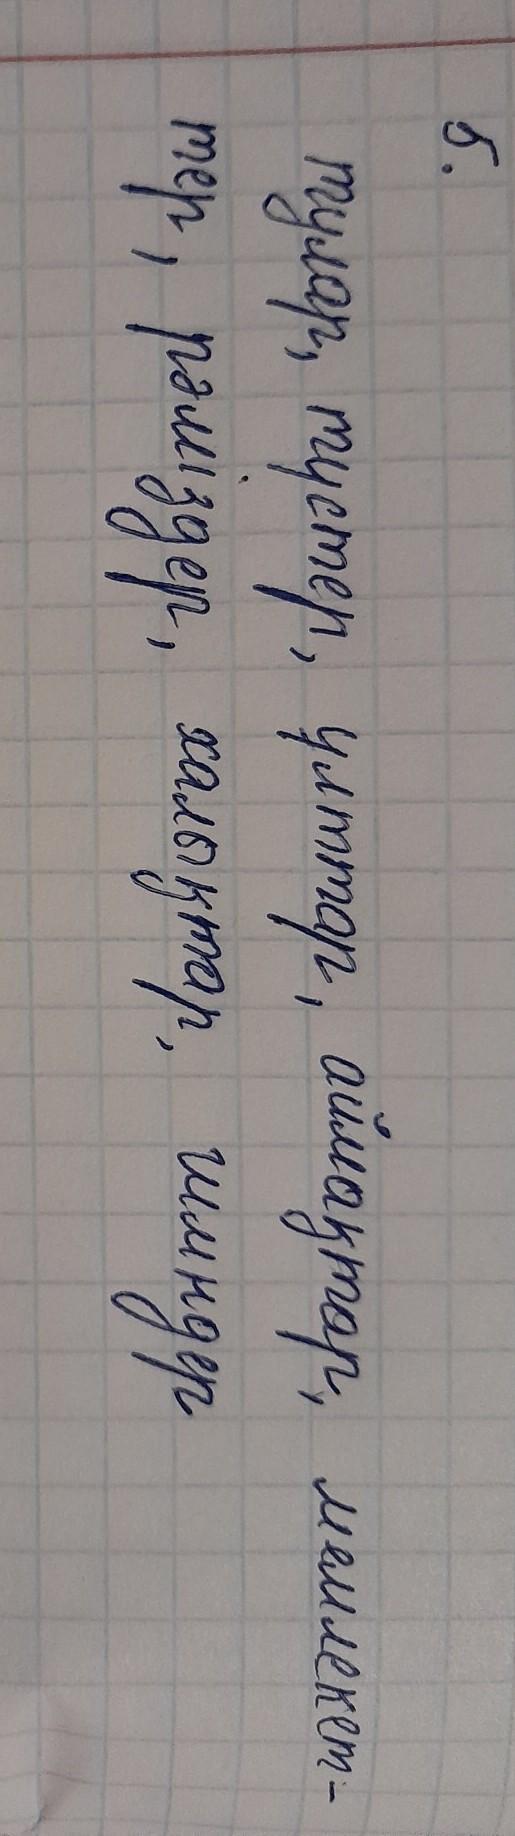 5.
тулар, түстер, ұлттар, аймақтар, мемлекет-
тер, рәміздер, халықтар, гимндер